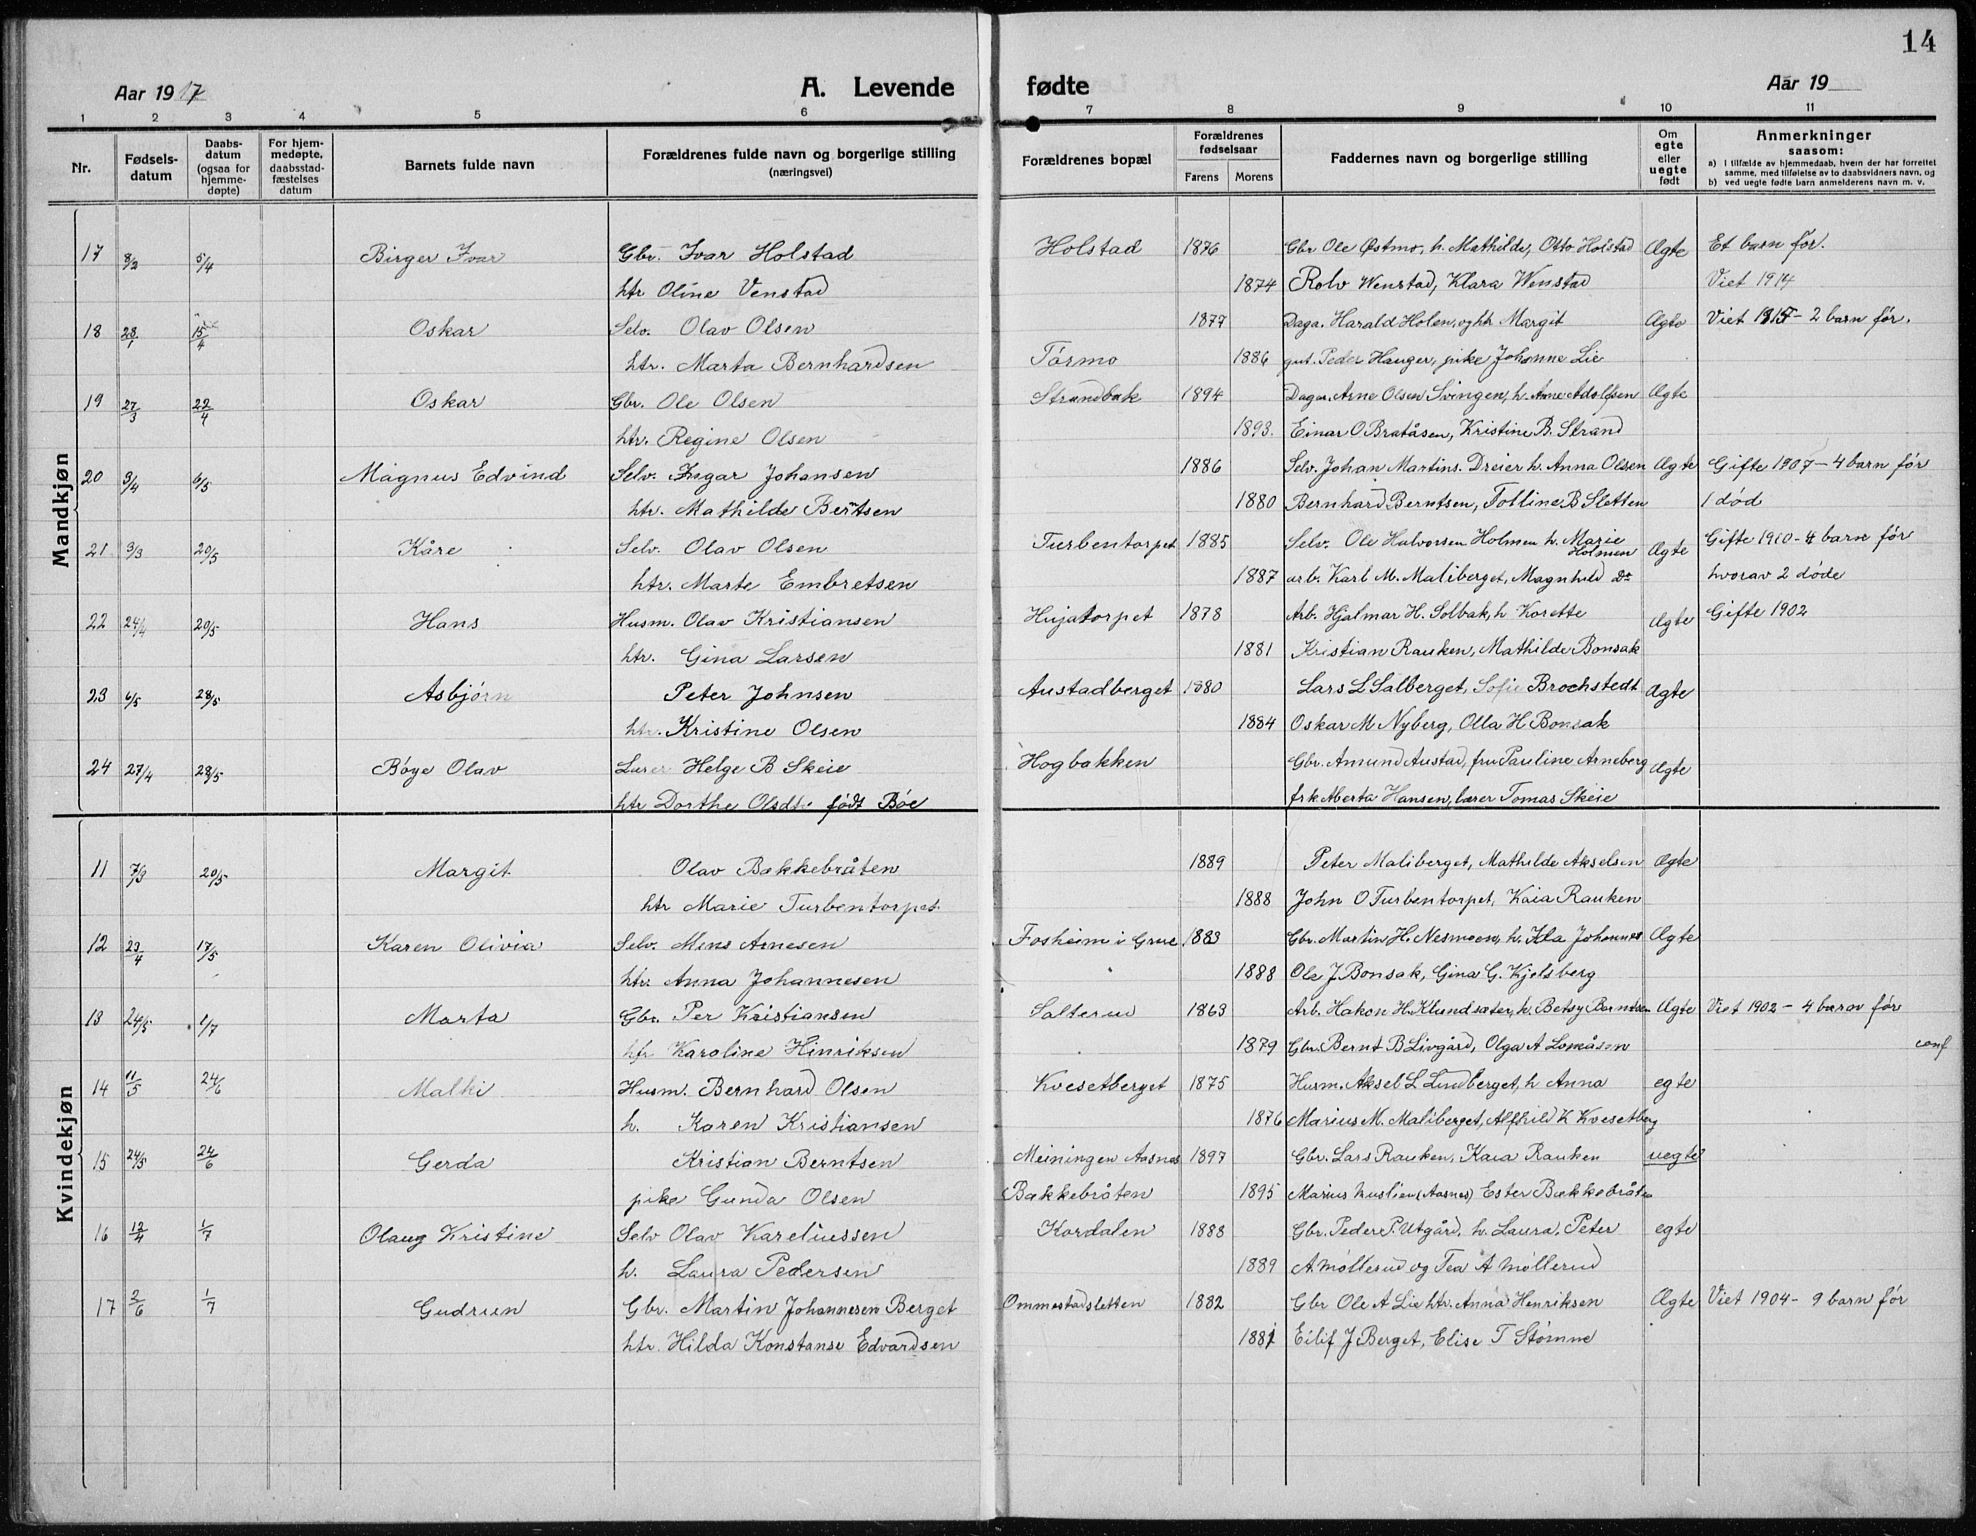 14
Aar 1917 A. Levende fødte Aar 19
1 2 3 4 5 6 7 8 9 10 11
Nr. Fødsels-datum Daabs-datum (ogsaa for hjemme-døpte) For hjem-medøpte, daabsstad-fæstelses datum Barnets fulde navn Forældrenes fulde navn og borgerlige stilling (næringsvei) Forældrenes bopæl Forældrenes fødselsaar Farens Morens Faddernes navn og borgerlige stilling Om egte eller uegte født Anmerkninger saasom: a) I tilfælde av hjemmedaab, hvem der har forrettet samme, med tilføielse av to daabsvidners navn, og b) ved uegte fødte barn anmelderens navn m. v.
Mandkjøn
17 8/2 5/4 Birger Ivar Gbr. Ivar Holstad Holstad 1876 Gbr Ole Østmo, h. Mathilde, Otto Holstad Ægte Et barn før.
htr Oline Venstad 1874 Rolv Wenstad, Klara Wenstad Viet 1914
18 28/1 15/4 Oskar Selv. Olav Olsen 1877 Daga. Harald Holen, og htr Margit Ægte Viet 1915 - 2 barn før.
htr. Marta Bernhardsen Tørmo 1886 gut. Peder Hauger, pike Johanne Lie
19 27/3 22/4 Oskar Gbr. Ole Olsen Strandbak 1894 Dagar. Arne Olsen Svingen, h. Anne Adolfsen Ægte
htr. Regine Olsen 1893. Einar O Bratåsen, Kristine B. Strand
20 3/4 6/5 Magnus Edvind Selv. Ingar Johansen 1886 Selv. Johan Martins. Dreier h. Anna Olsen Ægte Gifte 1907 - 4 barn før
htr. Mathilde Berntsen 1880 Bernhard Berntsen, Tolline B Sletten 1 død
21 3/3 20/5 Kåre Selv. Olav Olsen Turbentorpet 1885 Selv. Ole Halvorsen Holmen h. Marie Holmen Ægte Gifte 1910 - 4 barn før
htr. Marte Embretsen 1887 arb. Karl M. Maliberget, Magnhild Do hvorav 2 døde
22 24/4 20/5 Hans Husm. Olav Kristiansen Hujatorpet 1878 Arb. Hjalmar H. Solbak, h Korette Ægte Gifte 1902
htr. Gina Larsen 1881 Kristian Rauken, Mathilde Bonsak
23 6/5 28/5 Asbjørn Peter Johnsen Austadberget 1880 Lars L Salberget, Sofie Brochstedt Ægte
htr. Kristine Olsen 1884 Oskar M Nyberg, Olla H Bonsak
24 27/4 28/5 Bøye Olav Lærer Helge B Skeie Hogbakken Gbr. Amund Austad, fru Pauline Arneberg Ægte
htr Dorthe Olsdtr født Böe frk Aberta Hansen, lærer Tomas Skeie
Kvindekjøn
11 7/3 20/5 Margit Olav Bakkebråten 1889 Peter Maliberget, Mathilde Akselsen Ægte
htr Marie Turbentorpet. 1888 John O Turbentorpet, Kaia Rauken
12 23/4 17/5 Karen Olivia Selv. Mens Arnesen Fosheim i Grue 1883 Gbr. Martin H. Nesmoen, h. Ida Johannes Ægte
htr. Anna Johannesen 1888 Ole J Bonsak, Gina G. Kjelsberg
13 24/5 1/7 Marta Gbr. Per Kristiansen Salterud 1863 Arb. Hakon H. Klundsæter, h. Betsy Berntsen Ægte Viet 1902 - 4 barn før
htr Karoline Hinriksen 1879 Gbr. Bernt B Livgård, Olga A Lomåsen conf
14 11/5 24/6 Malhi Husm. Bernhard Olsen Kvesetberget 1875 Husm. Aksel L Lundberget, h Anna egte
h. Karen Kristiansen 1876 Marius M. Maliberget, Alfhild K Kvesetberg
15 24/5 24/6 Gerda Kristian Berntsen Meiningen Aasnas 1897 Gbr. Lars Rauken, Kaia Rauken uegte
pike Gunda Olsen Bakkebråten 1895 Marius Muslien (Aasnes) Ester Bækkebråten
16 12/4 1/7 Olaug Kristine Selv Olav Kareliussen Kordalen 1883 Gbr. Peder P. Utgård, h. Laura, Peter egte
h. Laura Pedersen 1889 A. Møllerud og Tea A Møllerud
17 2/6 1/7 Gudrun Gbr. Martin Johannesen Berget Ommestadsletten 1882 Gbr Ole A Lie htr. Anna Henriksen Ægte Viet 1904 - 9 barn før
htr. Hilda Konstanse Edvardsen 1881 Eilif J Berget, Elise T Stømne